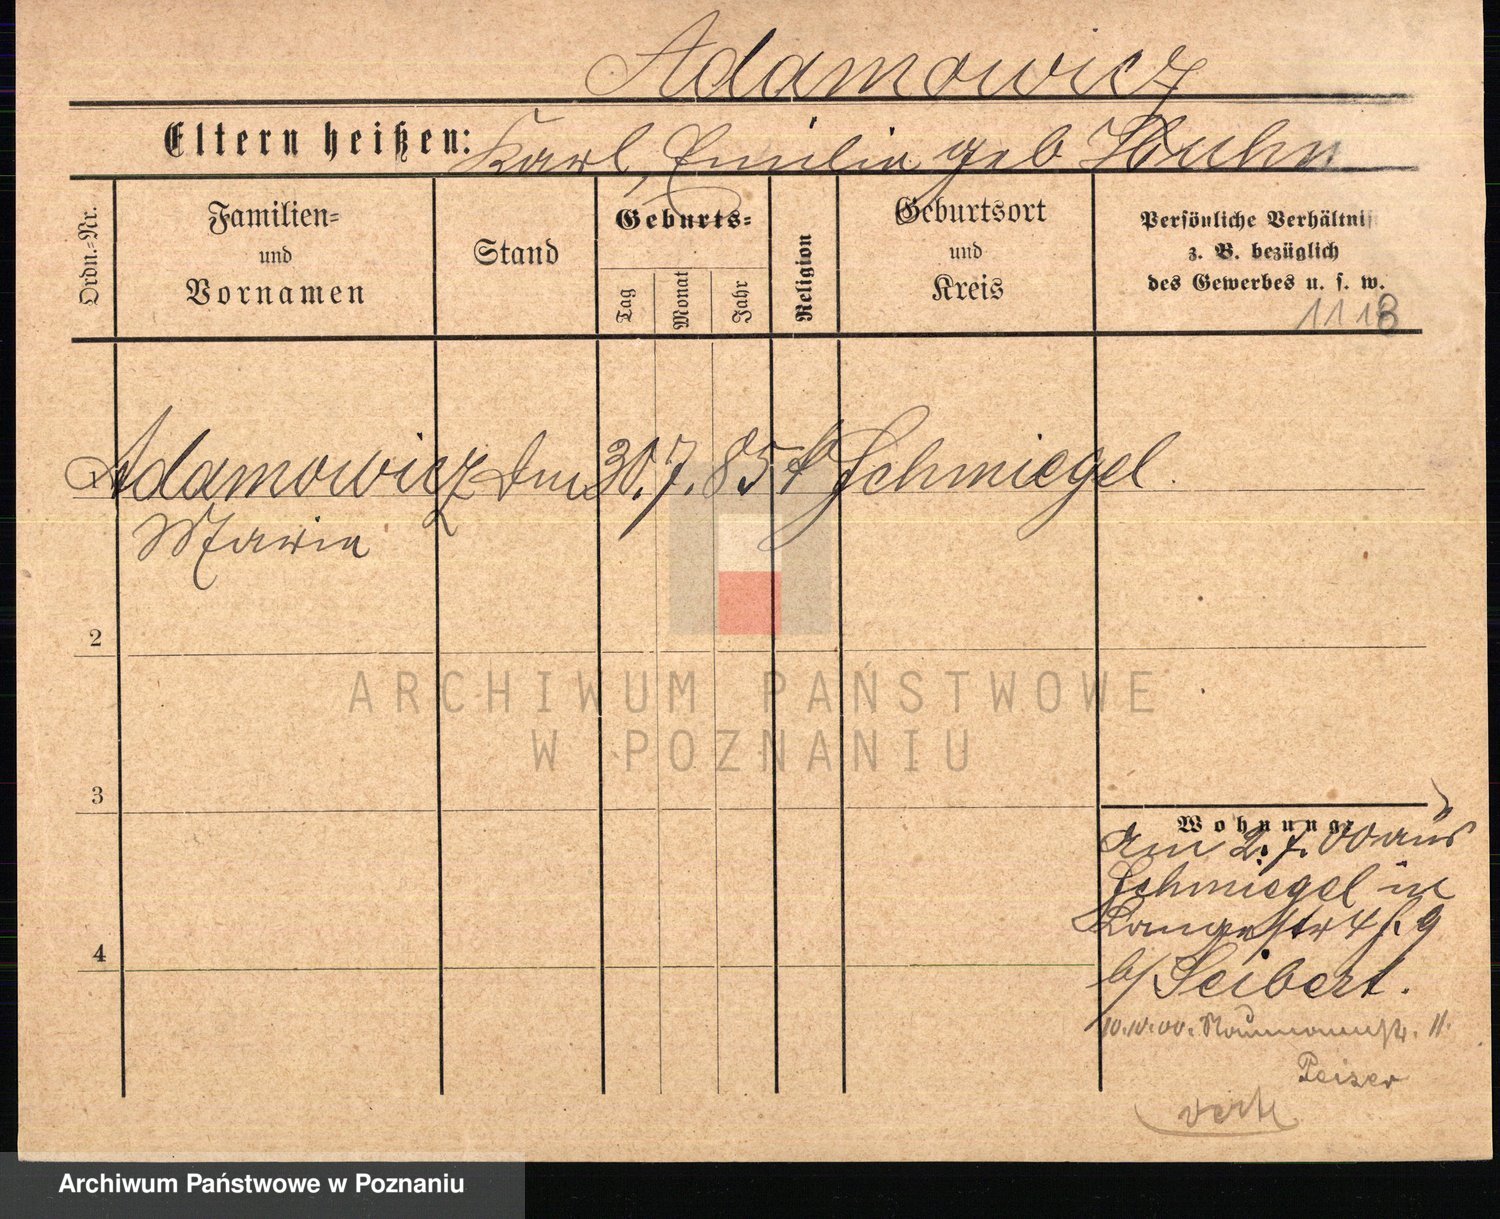 Adamowicz
Eltern heißen: Karl, Emilie geb
Ordn.=Nr.
Familien=
und
Vornamen
Stand
Geburts=
Tag
Monat
Jahr
Religion
Geburtsort
und
Kreis
Persönliche Verhältnis
z. B. bezüglich
des Gewerbes u. s. w.
1118
1 Adamowicz 30. 7. 85 Schmiegel.
Maria
2
3
4
Wohnung
am 2. 7. 00 aus
Schmiegel in
Langestr 4
b/ Seibert.
10.10.00. Naumannstr. 11.
Peiser
ARCHIWUM PAŃSTWOWE
W POZNANIU
Archiwum Państwowe w Poznaniu